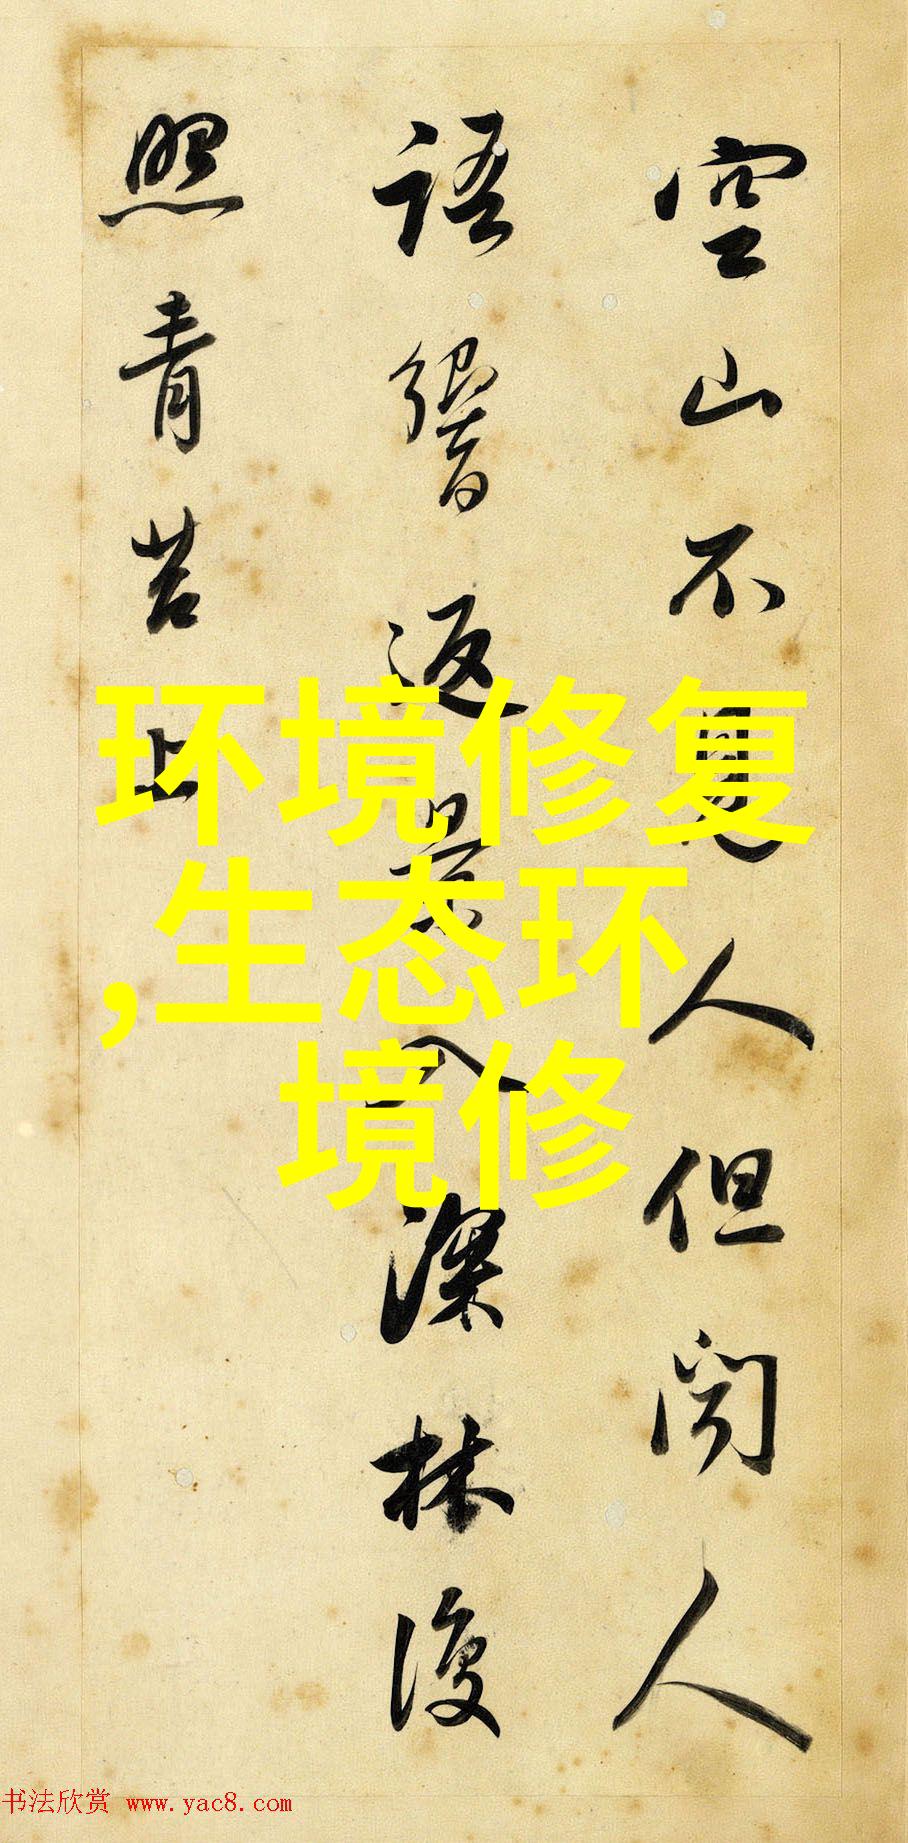 空山不見人但聞人
語響返景入深林復
照青苔上
环境修复
,生态环
境修
书法欣赏 www.yac8.com